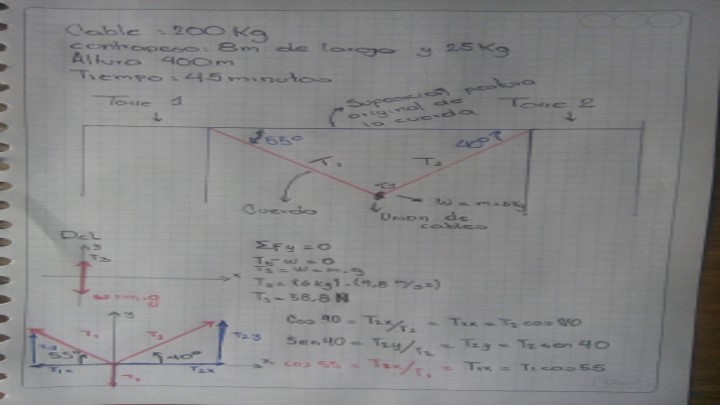 Cable: 200 Kg
contrapeso: 8m de largo y 25Kg
Altura 400m
Tiempo: 45 minutos
Torre 1
Torre 2
original de
la cuerda
55°
40°
T1
T2
T3
Cuerda
W = m = 6Kg
Union de
cables
DCL
y
T3
x
w=m.g
ΣFy=0
T3-w=0
T3=w=m.g
T3=(6Kg).(9,8 m/s2)
T3=58.8N
y
T1
T2
T1y
T2y
55°
40°
T1x
T2x
x
T3
cos 40 = T2x/T2 = T2x = T2 cos 40
sen 40 = T2y/T2 = T2y = T2 sen 40
cos 55 = T1x/T1 = T1x = T1 cos 55